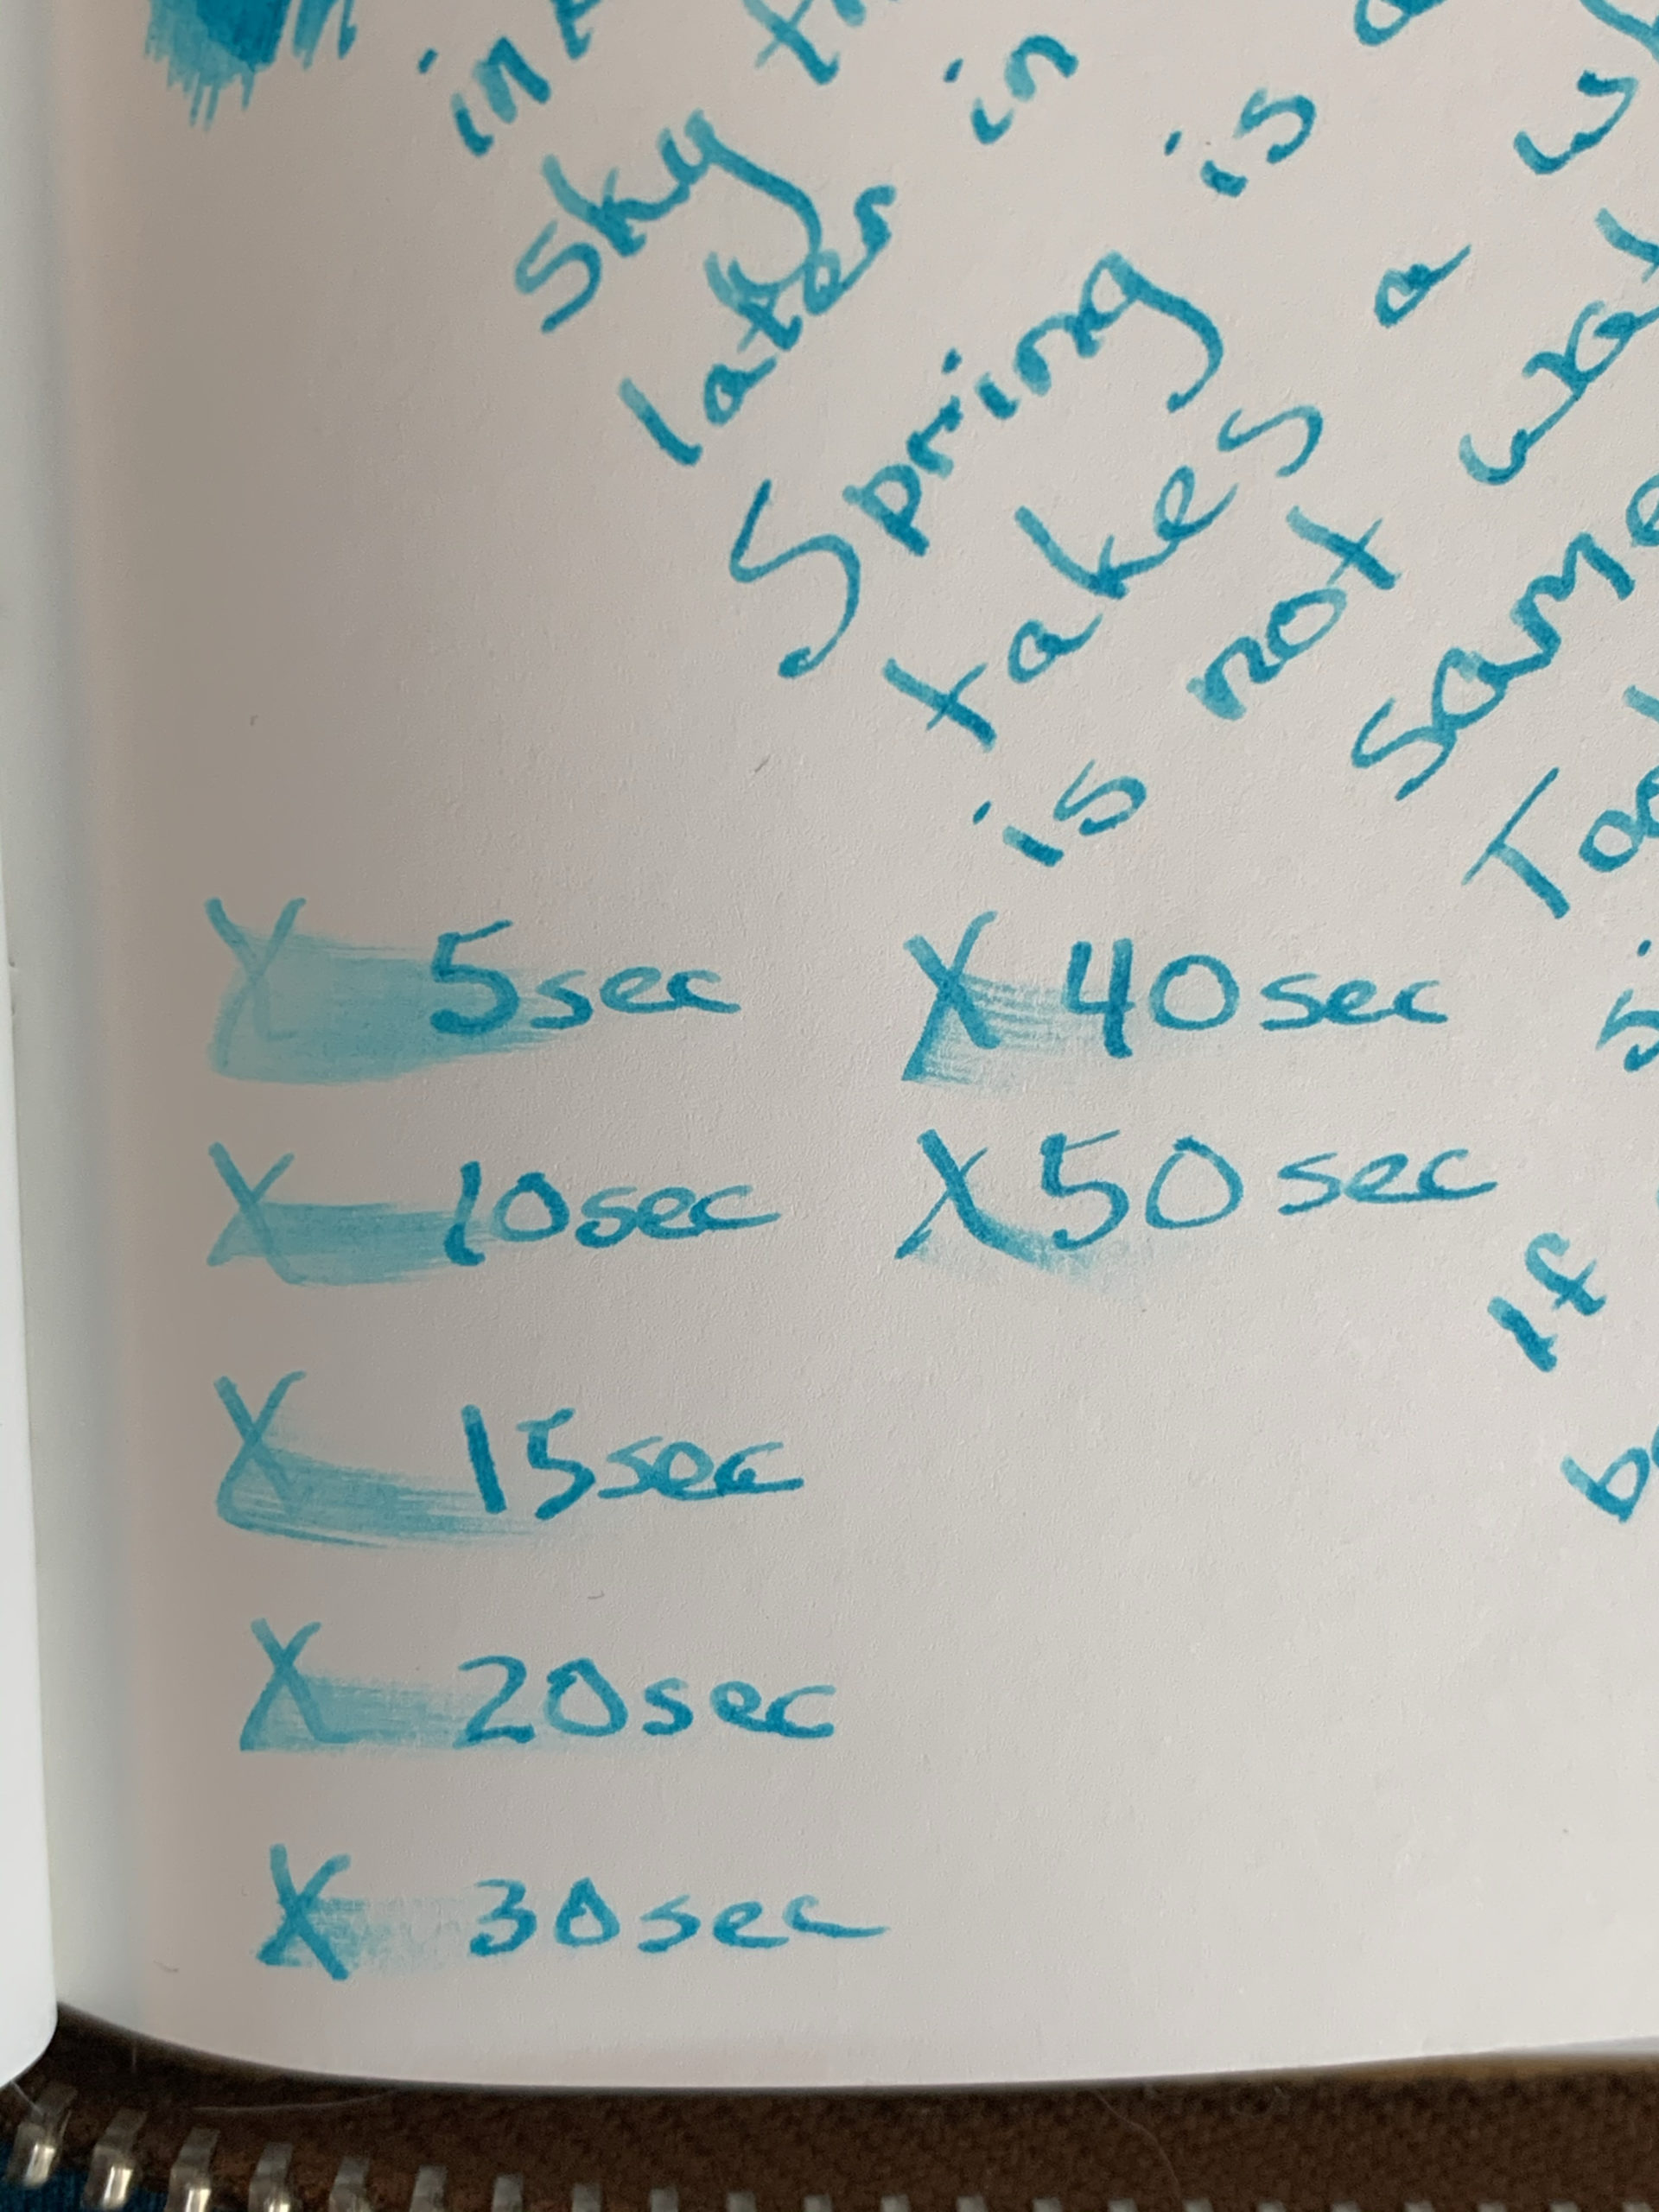 in
sky
later in
Spring is a
takes a
is not
same
X 5sec
X 10sec
X 15sec
X 20sec
X 30sec
X 40sec
X 50sec
If